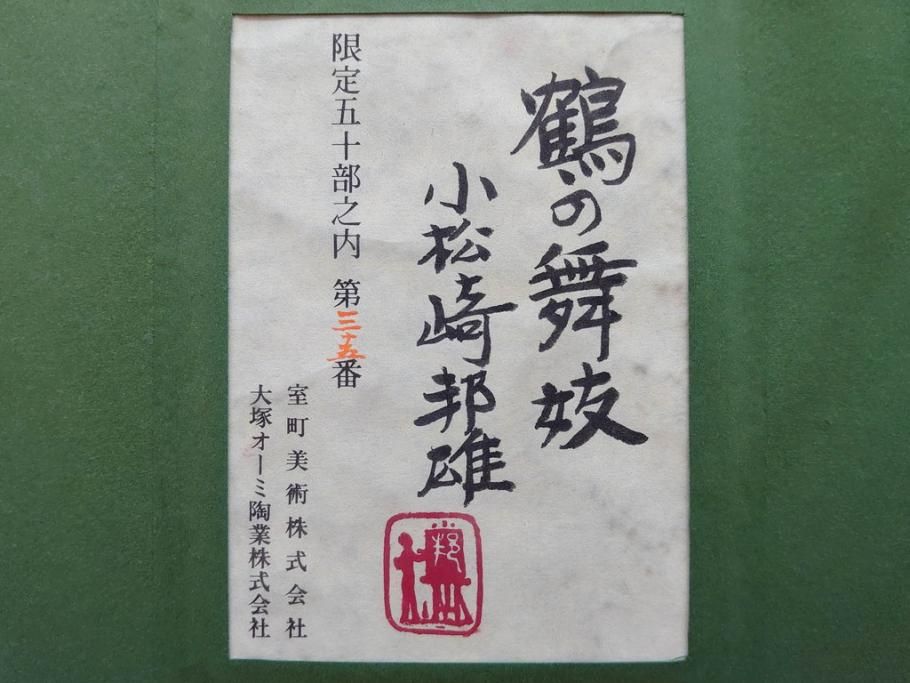 鶴の舞妓
小松崎邦雄
邦
限定五十部之内 第三十五番
室町美術株式会社
大塚オーミ陶業株式会社